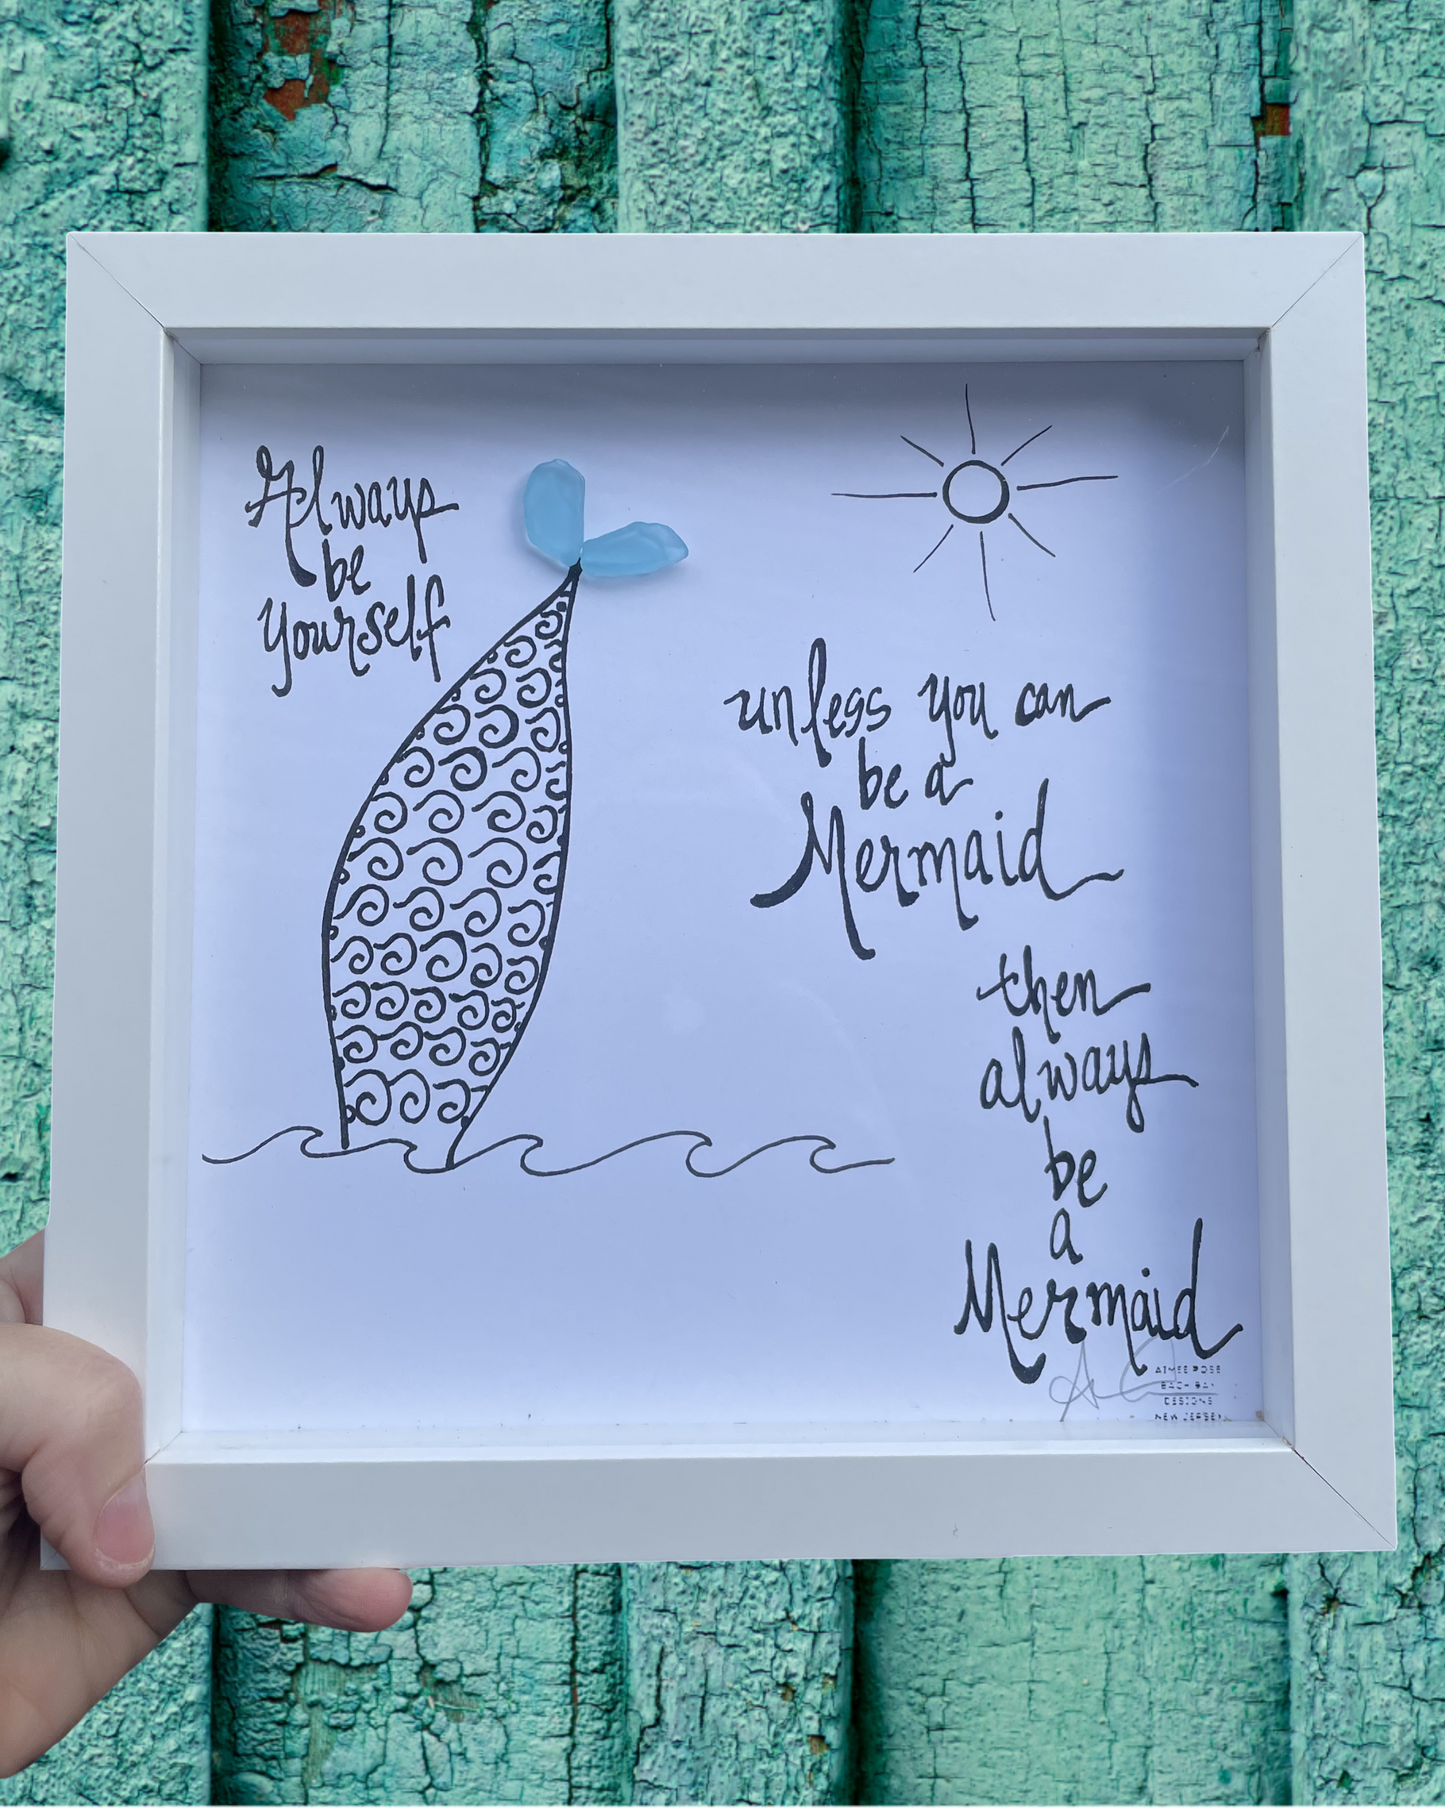 Always
be
yourself
unless you can
be a
Mermaid
then
always
be
a
Mermaid
AIMEE ROSE
BACH BAY
DESIGNS
NEW JERSEY